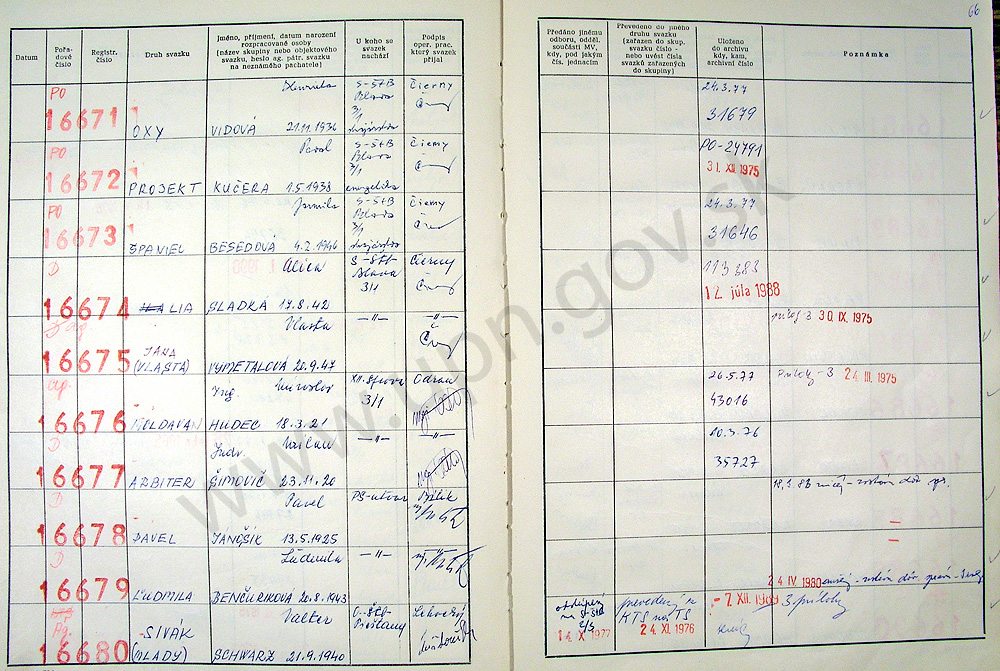 66
Datum
Pořadové číslo
Registr. číslo
Druh svazku
Jméno, příjmení, datum narození rozpracované osoby (název skupiny nebo objektového svazku, heslo ag. pátr. svazku na neznámého pachatele)
U koho se svazek nachází
Podpis oper. prac. který svazek přijal
Předáno jinému odboru, odděl. součásti MV, kdy, pod jakým čís. jednacím
Převedeno do jiného druhu svazku (zařazen do skup. svazku číslo - nebo uvést čísla svazků zařazených do skupiny)
Uloženo do archivu kdy, kam, archivní číslo
Poznámka
PO
16671
OXY
VIDOVÁ 21.11.1936
S-ŠTB
3/1
Čierny
24.3.77
31679
PO
16672
PROJEKT
Pavol
KUČERA 1.5.1938
S-ŠTB
3/1
energetika
Čierny
PO-24791
31. XII. 1975
PO
16673
ŠPANIEL
Jarmila
BESEDOVÁ 4.2.1946
S-ŠTB
3/1
Čierny
24.3.77
31646
D
16674
ALIA
Alica
SLADKÁ 17.8.42
S-ŠTB
3/1
Čierny
113683
12. júla 1988
16675
JANA
(VLASTA)
Vlasta
VYMETALOVÁ 20.9.47
-"-
-"-
30. IX. 1975
16676
MOLDAVAN
Ing. Miroslav
HUDEC 18.3.21
XII. správa
3/1
26.5.77
43016
24. III. 1975
D
16677
ARBITER
Judr. Václav
ŠIMOVIČ 23.11.20
-"-
-"-
10.3.76
35727
D
16678
PAVEL
Pavel
JÁNOŠÍK 13.5.1925
D
16679
ĽUDMILA
Ľudmila
BENČURIKOVÁ 20.8.1943
-"-
24. IV. 1980
16680
SIVÁK
(MLADÝ)
Valter
SCHWARZ 21.9.1940
O-ŠTB
Piešťany
14. X. 1977
24. XI. 1976
-7. XII. 1989
3 prílohy
www.upn.gov.sk